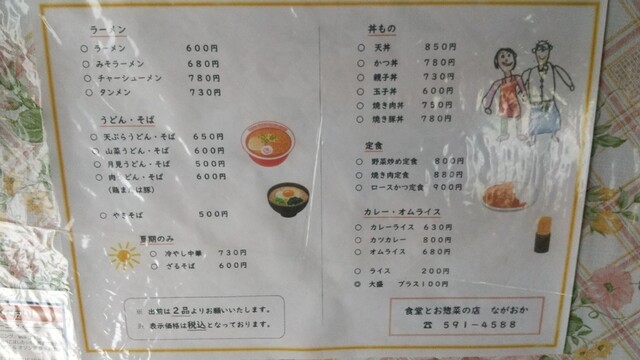 ラーメン
○ ラーメン 600円
○ みそラーメン 680円
○ チャーシューメン 780円
○ タンメン 730円
うどん・そば
○ 天ぷらうどん・そば 650円
○ 山菜うどん・そば 600円
○ 月見うどん・そば 500円
○ 肉うどん・そば 600円
(鶏または豚)
○ やきそば 500円
夏期のみ
○ 冷やし中華 730円
○ ざるそば 600円
※ 出前は2品よりお願いいたします。
※ 表示価格は税込となっております。
丼もの
○ 天丼 850円
○ かつ丼 780円
○ 親子丼 730円
○ 玉子丼 600円
○ 焼き肉丼 750円
○ 焼き豚丼 780円
定食
○ 野菜炒め定食 800円
○ 焼き肉定食 880円
○ ロースかつ定食 900円
カレー・オムライス
○ カレーライス 630円
○ カツカレー 800円
○ オムライス 680円
○ ライス 200円
◎ 大盛 プラス100円
食堂とお惣菜の店 ながおか
☎ 591-4588